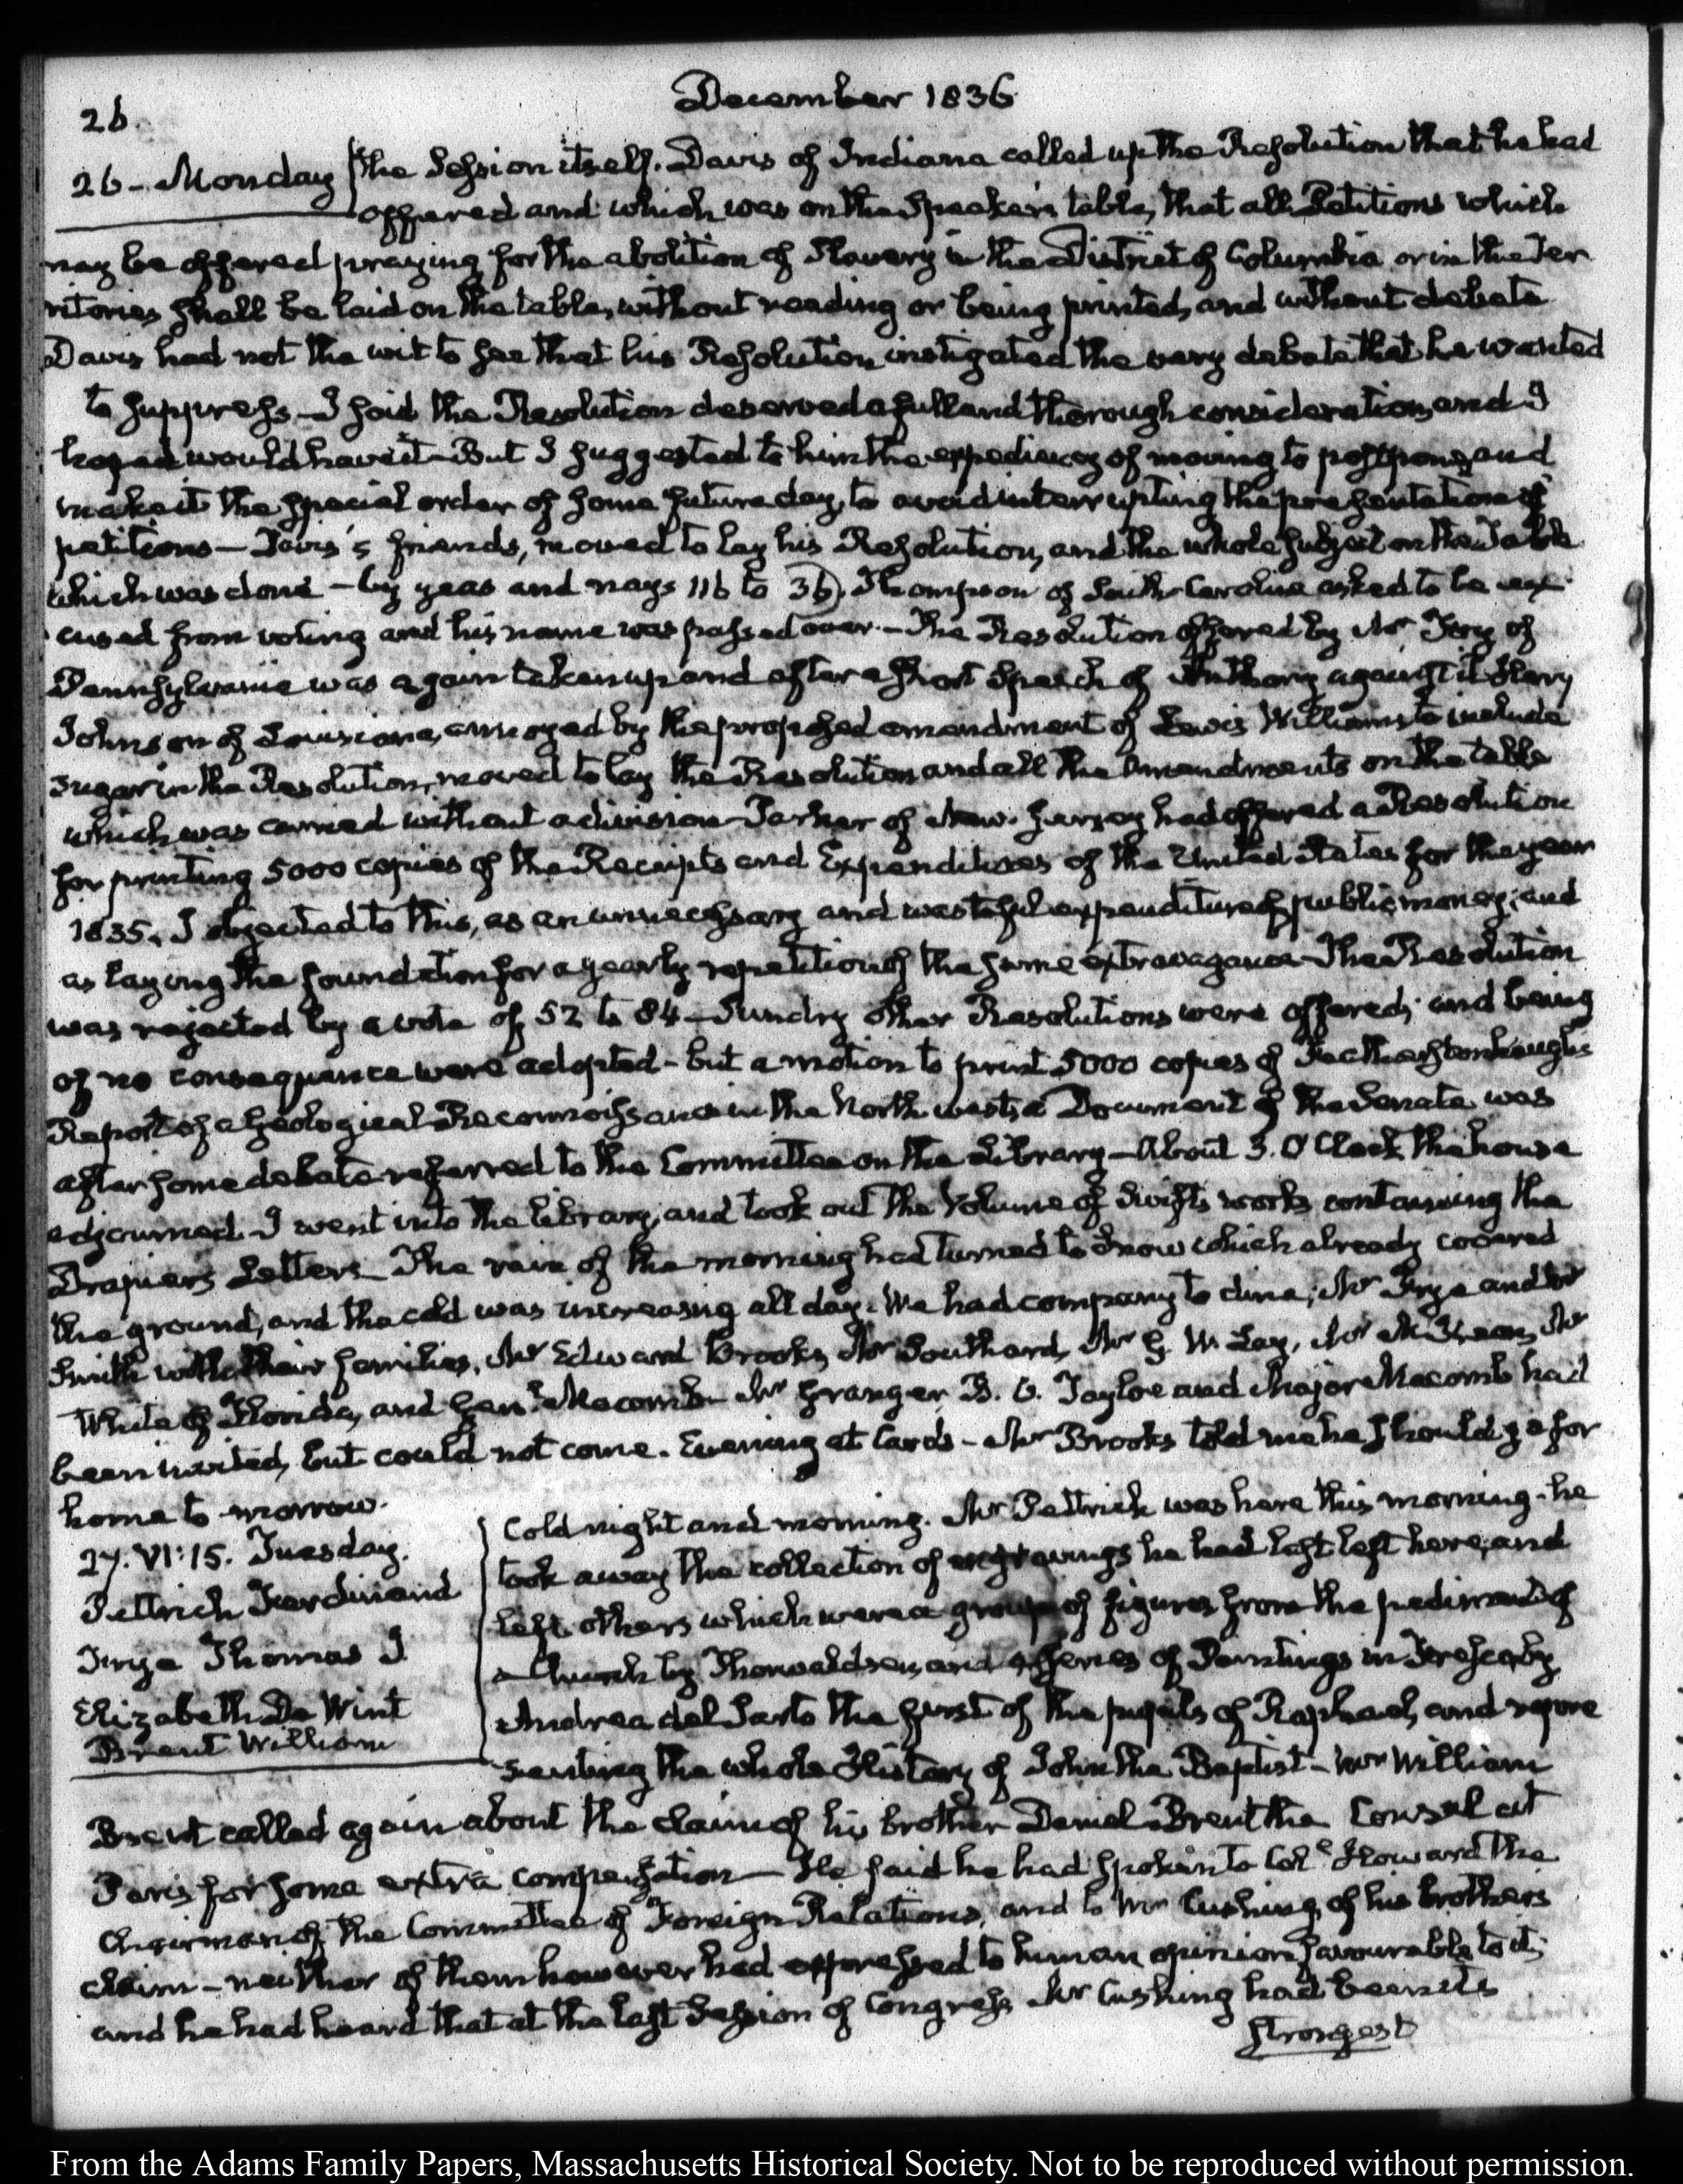 December 1836
26.
26 - Monday
the Session itself. Davis of Indiana called up the Resolution that he had
offered and which was on the Speaker's table, that all Petitions which
may be offered praying for the abolition of Slavery in the District of Columbia or in the Ter
ritories shall be laid on the table, without reading or being printed, and without debate
Davis had not the wit to see that his Resolution instigated the very debate that he wanted
to suppress — I said the Resolution deserved a full and thorough consideration, and I
hoped would have it — But I suggested to him the expediency of moving to postpone, and
make it the special order of some future day, to avoid interrupting the presentation of
petitions — Davis's friends, moved to lay his Resolution, and the whole subject on the Table
which was done — by yeas and nays 116 to 36. Thompson of South Carolina asked to be ex
cused from voting and his name was passed over. — The Resolution offered by Mr Fry of
Pennsylvania was again taken up and after a short Speech of Anthony against it Henry
Johnson of Louisiana, annoyed by the proposed amendment of Lewis Williams to include
sugar in the Resolution, moved to lay the Resolution and all the Amendments on the table
which was carried without a division — Parker of New-Jersey had offered a Resolution
for printing 5000 copies of the Receipts and Expenditures of the United States for the year
1835. I objected to this, as an unnecessary and wasteful expenditure of public money; and
as laying the foundation for a yearly repetition of the same extravagance — The Resolution
was rejected by a vote of 52 to 84 — Sundry other Resolutions were offered; and being
of no consequence were adopted — but a motion to print 5000 copies of Featherstonhaugh's
Report of a Geological Reconnoissance in the North west, a Document of the Senate was
after some debate referred to the Committee on the Library — About 3. O'Clock the house
adjourned. I went into the library, and took out the Volume of Swift's works containing the
Drapiers Letters — The rain of the morning had turned to Snow which already covered
the ground, and the cold was increasing all day. We had company to dine; Mr Frye and Mr
Smith with their families, Mr Edward Brooks, Mr Southard, Mr G. W. Lay, Mr McKean, Mr
White of Florida, and Genl. Macomb — Mr Granger, B. O. Tayloe and Major Macomb had
been invited, but could not come. Evening at Cards — Mr Brooks told me he should go for
home to-morrow.
27. VI:15. Tuesday.
Pettrich Ferdinand
Frye Thomas J.
Elizabeth De Wint
Brent William
Cold night and morning. Mr Pettrich was here this morning. he
took away the collection of engravings he had left left here, and
left others which were a group of figures from the pediment of
a Church by Thorwaldsen, and a series of Paintings in Fresco, by
Andrea del Sarto the first of the pupils of Raphael, and repre
senting the whole History of John the Baptist — Mr William
Brent called again about the claim of his brother Daniel Brent the Consul at
Paris for some extra compensation — He said he had spoken to Coll. Howard the
Chairman of the Committee of Foreign Relations, and to Mr Cushing, of his brothers
claim — neither of them however had expressed to him an opinion favourable to it;
and he had heard that at the last Session of Congress Mr Cushing had been its
strongest
From the Adams Family Papers, Massachusetts Historical Society. Not to be reproduced without permission.